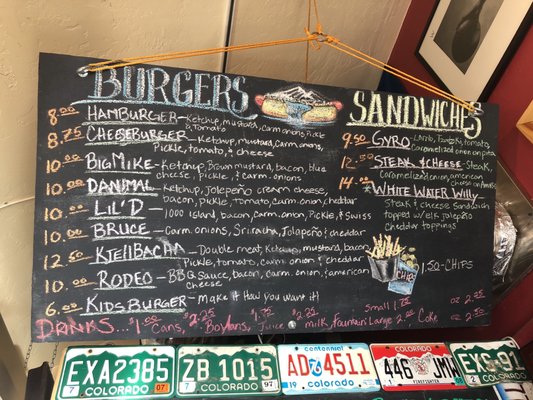 BURGERS
8.00 HAMBURGER - Ketchup, mustard, carm. onions, Pickle
& Tomato
8.75 CHEESEBURGER - Ketchup, mustard, carm. onions,
Pickle, tomato, & cheese
10.00 BIG MIKE - Ketchup, mustard, bacon, blue
cheese, Pickle, & carm. onions
10.00 DANIMAL - Ketchup, Jalopeño cream cheese,
bacon, Pickle, Tomato, carm. onion, cheddar
10.00 LIL'D - 1000 Island, bacon, carm. onion, Pickle, & Swiss
10.00 BRUCE - Carm. onions, Sriracha, Jalopeño & cheddar
12.50 KJELLBACHA - Double meat, Ketchup, mustard, bacon
Pickle, tomato, carm. onion, & cheddar
10.00 RODEO - BBQ Sauce, bacon, carm. onion, & american
Cheese
6.00 KIDS BURGER - Make it How you want it!
SANDWICHES
9.50 GYRO - Lamb, tomato,
Caramelized onion on pita
12.50 STEAK & CHEESE - Steak,
Caramelized onion, american
cheese on
14.00 *WHITE WATER WILLY
Steak & cheese Sandwich
topped w/ elk jalepeño
Cheddar toppings
CHIPS
1.50 - CHIPS
DRINKS... $1.25 Cans, $2.25 Boylans, $1.75 Juice $2.25 milk, Fountain Small 1.75 Large 2.00 Coke oz 2.25
oz 2.50
EXA2385
07 COLORADO
ZB 1015
7 COLORADO 97
centennial
AD 4511
19 colorado
COLORADO
446 JMW
FIREFIGHTER
EXS
COLORADO